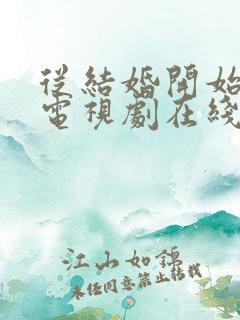 從結婚開始
電視劇在綫
江山如錦
未經同意禁止轉載